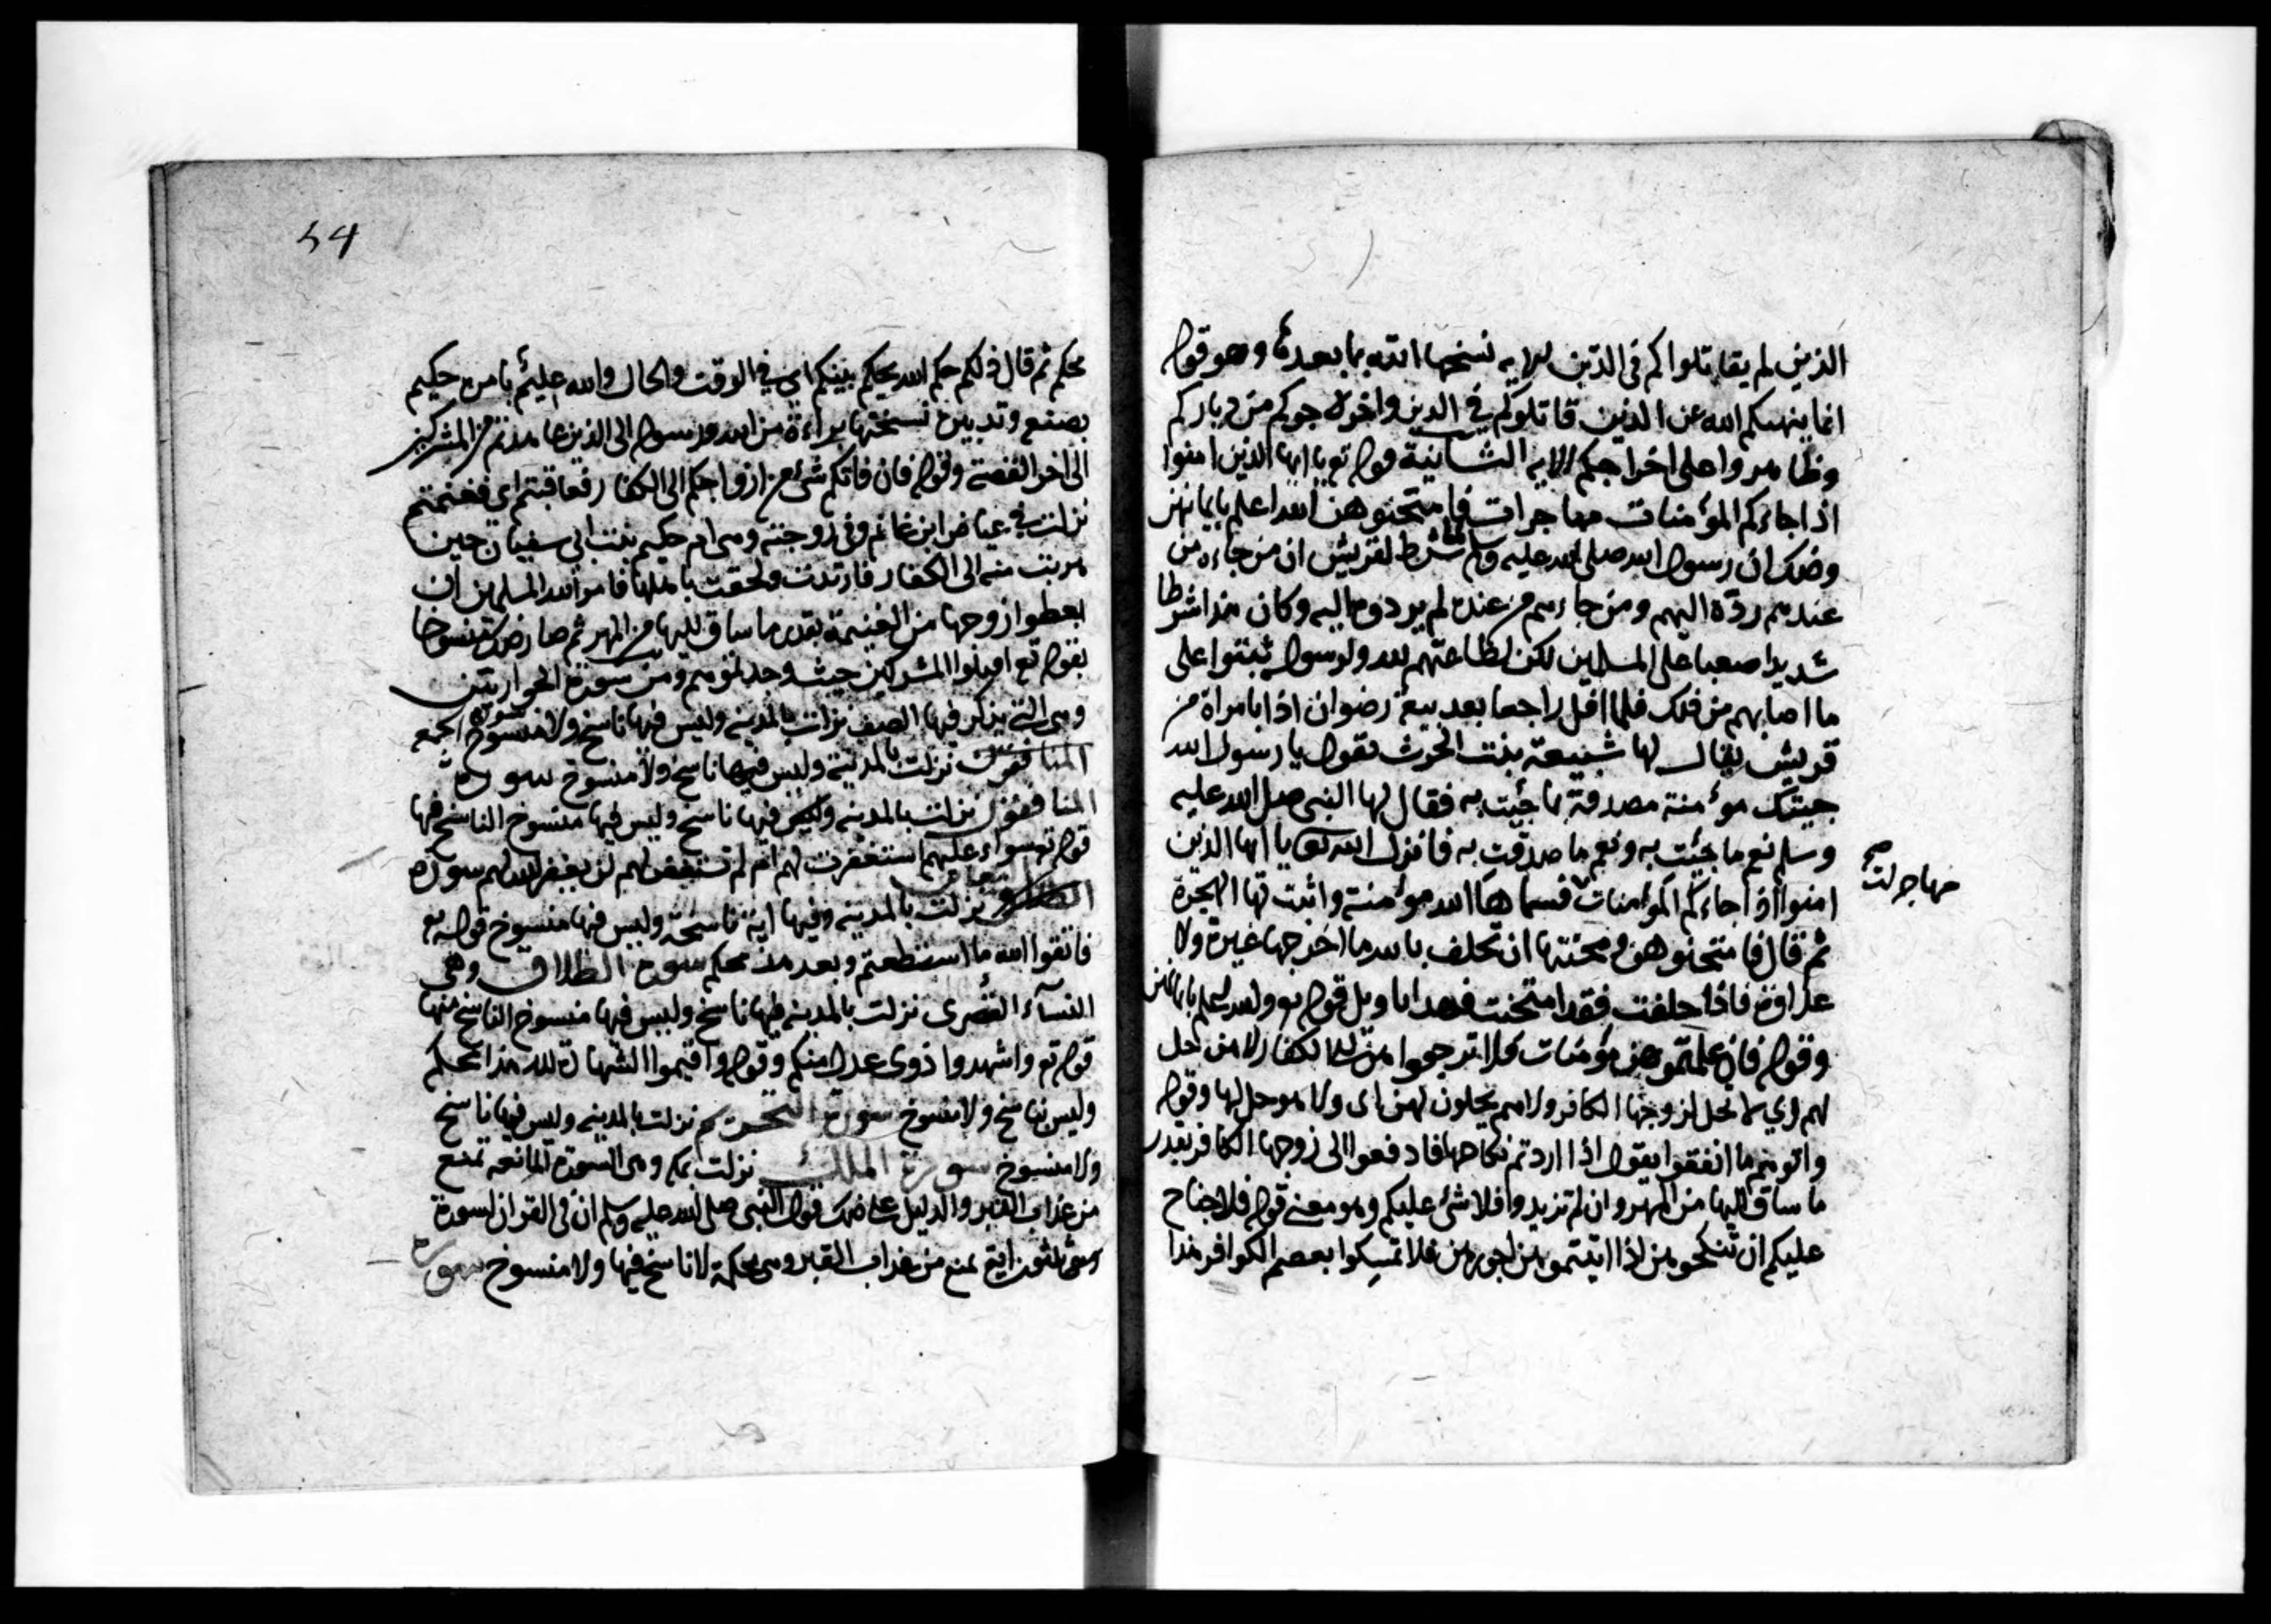 الذين لم يقاتلوكم فى الدين الايه نسخها الله بما بعدها وهو قوله
انما ينهيكم الله عن الذين قاتلوكم فى الدين واخرجوكم من دياركم
وظاهروا على اخراجكم الايه الثانية قوله تع يا ايها الذين امنوا
اذا جاءكم المؤمنات مهاجرات فامتحنوهن الله اعلم بايمانهن
وذلك ان رسول الله صلى الله عليه وسلم شرط لقريش ان من جاءه من
عندهم رده اليهم ومن جاءهم من عنده لم يردوه اليه وكان هذا شرطا
شديدا صعبا على المسلمين لكن لطاعتهم لله ولرسوله ثبتوا على
ما اصابهم من ذلك فلما اقبل راجعا بعد بيعة رضوان اذا بامراة من
قريش يقال لها شبيعة بنت الحرث تقول يا رسول الله
جيتك مؤمنة مصدقة بما جئت به فقال لها النبى صلى الله عليه
وسلم نعم ما جئت به ونعم ما صدقت به فانزل الله تعا يا ايها الذين
امنوا اذا جاءكم المؤمنات فسماها الله مؤمنة واثبت لها الهجرة
مهاجرات صح
ثم قال فامتحنوهن ومحنتها ان تحلف بالله ما اخرجها غيرة ولا
عداوة فاذا حلفت فقد امتحنت فهذا تاويل قوله تع والله اعلم بايمانهن
وقوله فان علمتموهن مؤمنات فلا ترجعوهن الى الكفار لا هن حل
لهم اي لا تحل لزوجها الكافر ولا هم يحلون لهن اى ولا هو حل لها وقوله
واتوهم ما انفقوا يقول اذا اردتم نكاحها فادفعوا الى زوجها الكافر بقدر
ما ساق اليها من المهر وان لم تريدوا فلا شئ عليكم وهو معنى قوله فلا جناح
عليكم ان تنكحوهن اذا اتيتموهن اجورهن فلا تمسكوا بعصم الكوافر هذا
54
محكم ثم قال ذلكم حكم الله يحكم بينكم اى فى الوقت والحال والله عليم بامره حكيم
بصنعه وتدبيره نسختها براءة من الله ورسوله الى الذين عاهدتم من المشركين
الى اخر القصة وقوله فان فاتكم شئ من ازواجكم الى الكفار فعاقبتم اى فغنمتم
نزلت فى عياض ابن غانم وفى زوجته وهى ام حكيم بنت ابى سفيان حين
هربت منه الى الكفار فارتدت ولحقت باهلها فامر الله المسلمين ان
يعطوا زوجها من الغنيمة بقدر ما ساق اليها من المهر ثم صار ذلك منسوخا
بقوله تع اقتلوا المشركين حيث وجدتموهم ومن سورة الحواريين
وهى التى يذكر فيها الصف نزلت بالمدينه وليس فيها ناسخ ولا منسوخ سورة الجمعه
نزلت بالمدينة وليس فيها ناسخ ولا منسوخ سورة
المنافقون نزلت بالمدينه وليس فيها ناسخ وليس فيها منسوخ الناسخ فيها
قوله تع سواء عليهم استغفرت لهم ام لم تستغفر لهم لن يغفر الله لهم سورة
التغابن نزلت بالمدينه وفيها اية ناسخة وليس فيها منسوخ قوله تع
فاتقوا الله ما استطعتم وبعد هذا محكم سورة الطلاق وهى
النساء القصرى نزلت بالمدينه فيها ناسخ وليس فيها منسوخ الناسخ منها
قوله تع واشهدوا ذوى عدل منكم وقوله واقيموا الشهادة لله هذا محكم
وليس بناسخ ولا منسوخ سورة التحريم نزلت بالمدينه وليس فيها ناسخ
ولا منسوخ سورة الملك نزلت بمكه وهى السورة المانعه تمنع
من عذاب القبر والدليل على ذلك قول النبى صلى الله عليه وسلم ان فى القران لسورة
وهى ثلثون اية تمنع من عذاب القبر وهى محكمة لا ناسخ فيها ولا منسوخ سورة